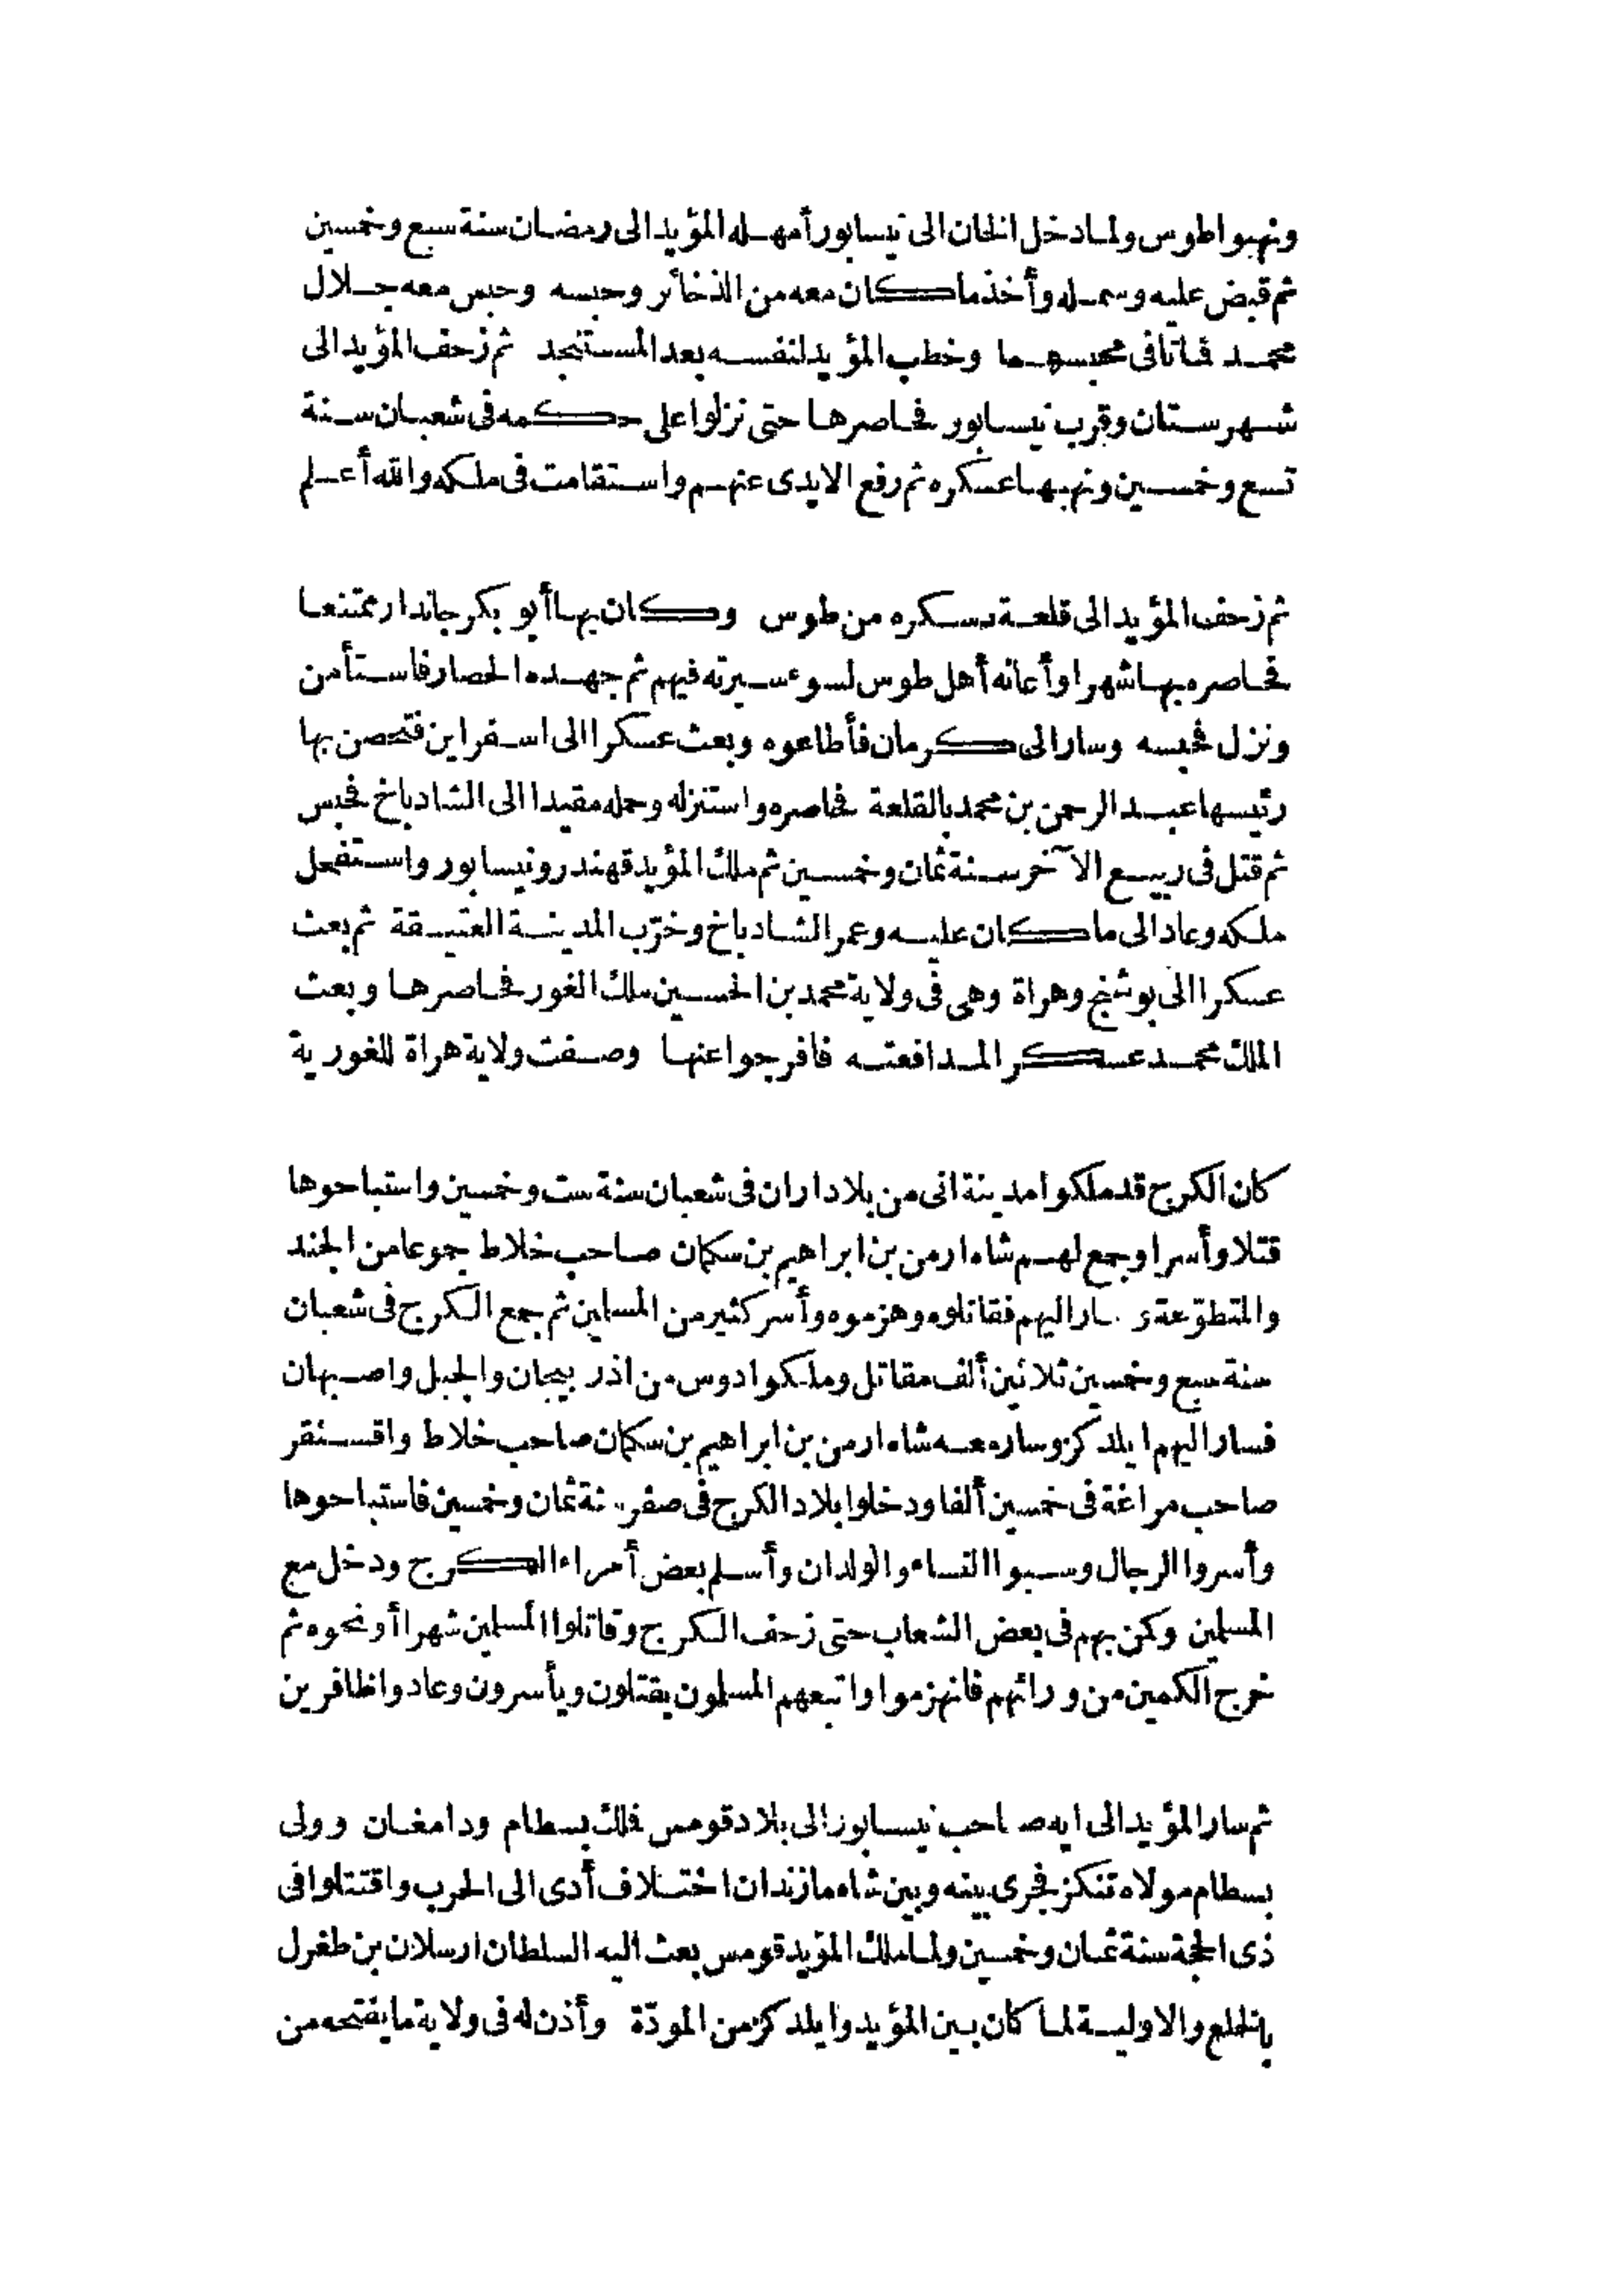 ونهبوا طوس ولما دخل الخان الى نيسابور أمهله المؤيد الى رمضان سنة سبع وخمسين
ثم قبض عليه وسمله وأخذ ما كان معه من الذخائر وحبسه وحبس معه جلال
محمد فماتا فى محبسهما وخطب المؤيد لنفسه بعد المستنجد ثم زحف المؤيد الى
شهرستان وقرب نيسابور فحاصرها حتى نزلوا على حكمه فى شعبان سنة
تسع وخمسين ونهبها عسكره ثم رفع الايدى عنهم واستقامت فى ملكه والله أعلم
ثم زحف المؤيد الى قلعة دسكره من طوس وكان بها أبو بكر جاندار ممتنعا
فحاصره بها شهرا وأعانه أهل طوس لسوء سيرته فيهم ثم جهده الحصار فاستأمن
ونزل فحبسه وسار الى كرمان فأطاعوه وبعث عسكرا الى اسفراين فتحصن بها
رئيسها عبد الرحمن بن محمد بالقلعة فحاصره واستنزله وحمله مقيدا الى الشادباخ فحبس
ثم قتل فى ربيع الآخر سنة ثمان وخمسين ثم ملك المؤيد قهندر ونيسابور واستفحل
ملكه وعاد الى ما كان عليه وعمر الشادباخ وخرّب المدينة العتيقة ثم بعث
عسكرا الى بوشنج وهراة وهى فى ولاية محمد بن الحسين ملك الغور فحاصرها وبعث
الملك محمد عسكرا لمدافعته فافرجوا عنها وصفت ولاية هراة للغورية
كان الكرج قد ملكوا مدينة انى من بلاد اران فى شعبان سنة ست وخمسين واستباحوها
قتلا وأسرا وجمع لهم شاه ارمن بن ابراهيم بن سكمان صاحب خلاط جموعا من الجند
والمتطوّعة و سار اليهم فقاتلوه وهزموه وأسر كثير من المسلمين ثم جمع الكرج فى شعبان
سنة سبع وخمسين ثلاثين ألف مقاتل وملكوا دوس من اذربيجان والجبل واصبهان
فسار اليهم ايلدكز وسار معه شاه ارمن بن ابراهيم بن سكمان صاحب خلاط واقسنقر
صاحب مراغة فى خمسين ألفا ودخلوا بلاد الكرج فى صفر سنة ثمان وخمسين فاستباحوها
وأسروا الرجال وسبوا النساء والولدان وأسلم بعض أمراء الكرج ودخل مع
المسلمين وكمن بهم فى بعض الشعاب حتى زحف الكرج وقاتلوا المسلمين شهرا أو نحوه ثم
خرج الكمين من ورائهم فانهزموا واتبعهم المسلمون يقتلون ويأسرون وعادوا ظافرين
ثم سار المؤيد الى ايه صاحب نيسابور الى بلاد قومس فملك بسطام ودامغان وولى
بسطام مولاه تنكز فجرى بينه وبين شاه مازندان اختلاف أدى الى الحرب واقتتلوا فى
ذى الحجة سنة ثمان وخمسين ولما ملك المؤيد قومس بعث اليه السلطان ارسلان بن طغرل
بالخلع والاولية لما كان بين المؤيد وايلدكز من المودّة وأذن له فى ولاية ما يفتحه من